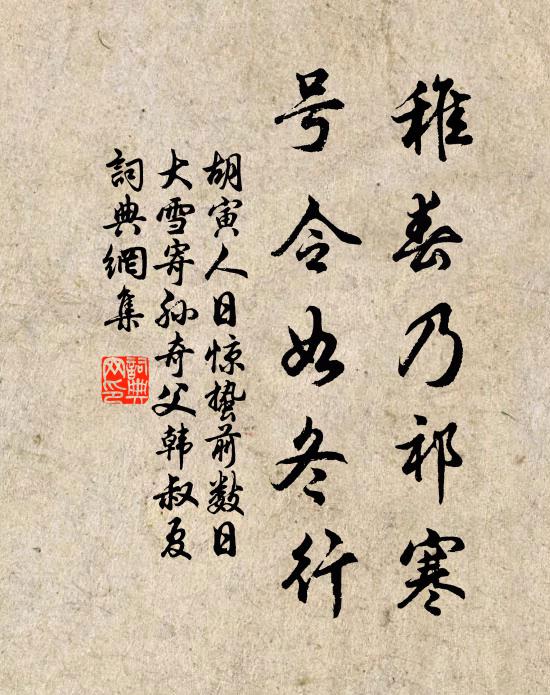 稚春乃祁寒
号令如冬行
胡寅人日惊蛰前数日
大雪寄孙奇父韩叔夏
詞典網集
詞典
网印